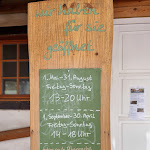 Wir haben
für sie
geöffnet
1. Mai - 31. August
Freitag - Sonntag
13 - 20 Uhr
1. September - 30. April
Freitag - Sonntag
14 - 18 Uhr